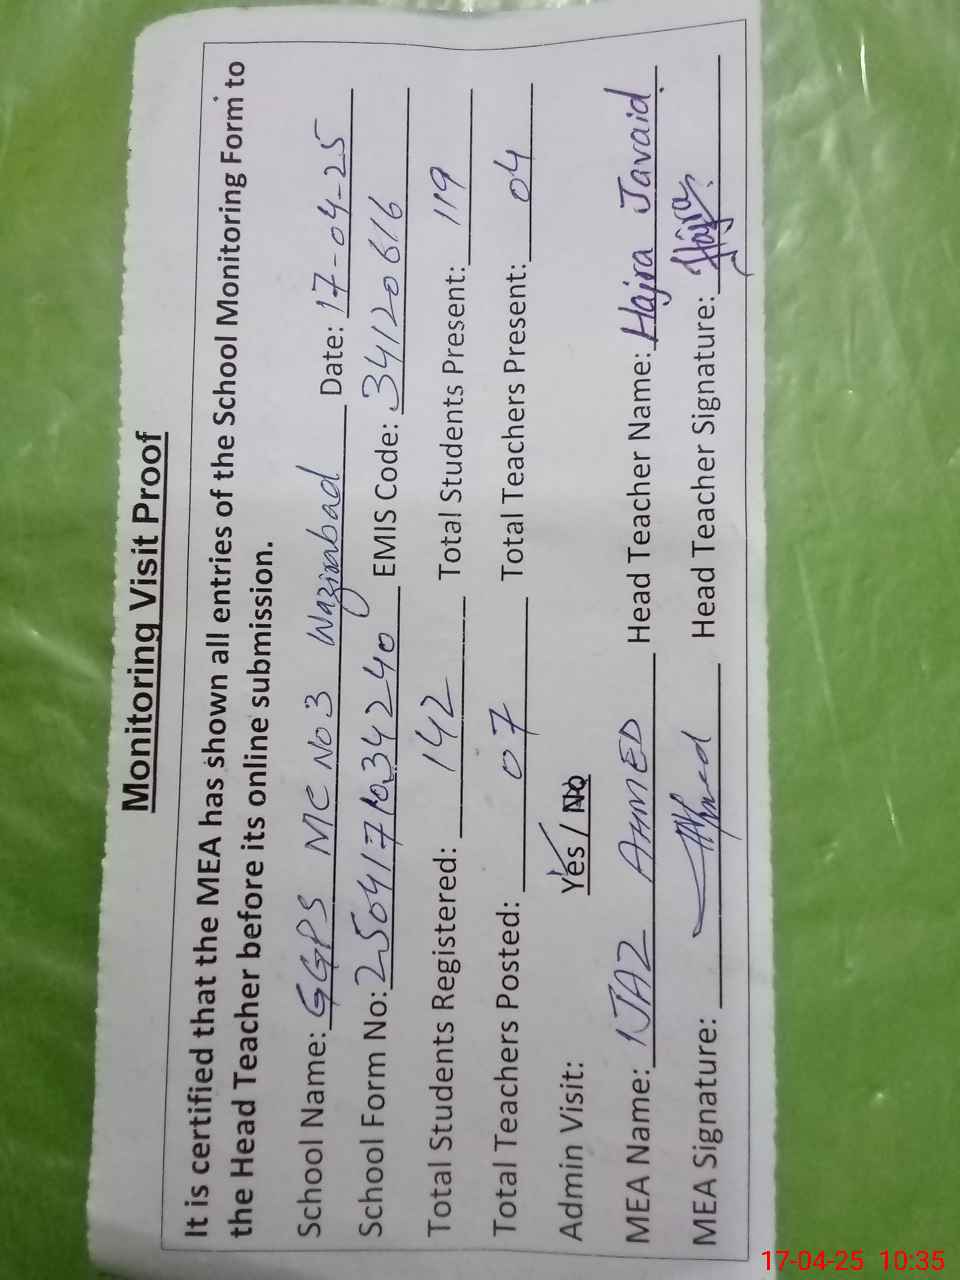 Monitoring Visit Proof
It is certified that the MEA has shown all entries of the School Monitoring Form to
the Head Teacher before its online submission.
School Name: GGPS MC No 3 Wazirabad Date: 17-04-25
School Form No: 2504171034240 EMIS Code: 34120616
Total Students Registered: 142 Total Students Present: 119
Total Teachers Posted: 07 Total Teachers Present: 04
Admin Visit: Yes / No
MEA Name: IJAZ AHMED Head Teacher Name: Hajra Javaid
MEA Signature: Head Teacher Signature: Hajra
17-04-25 10:35